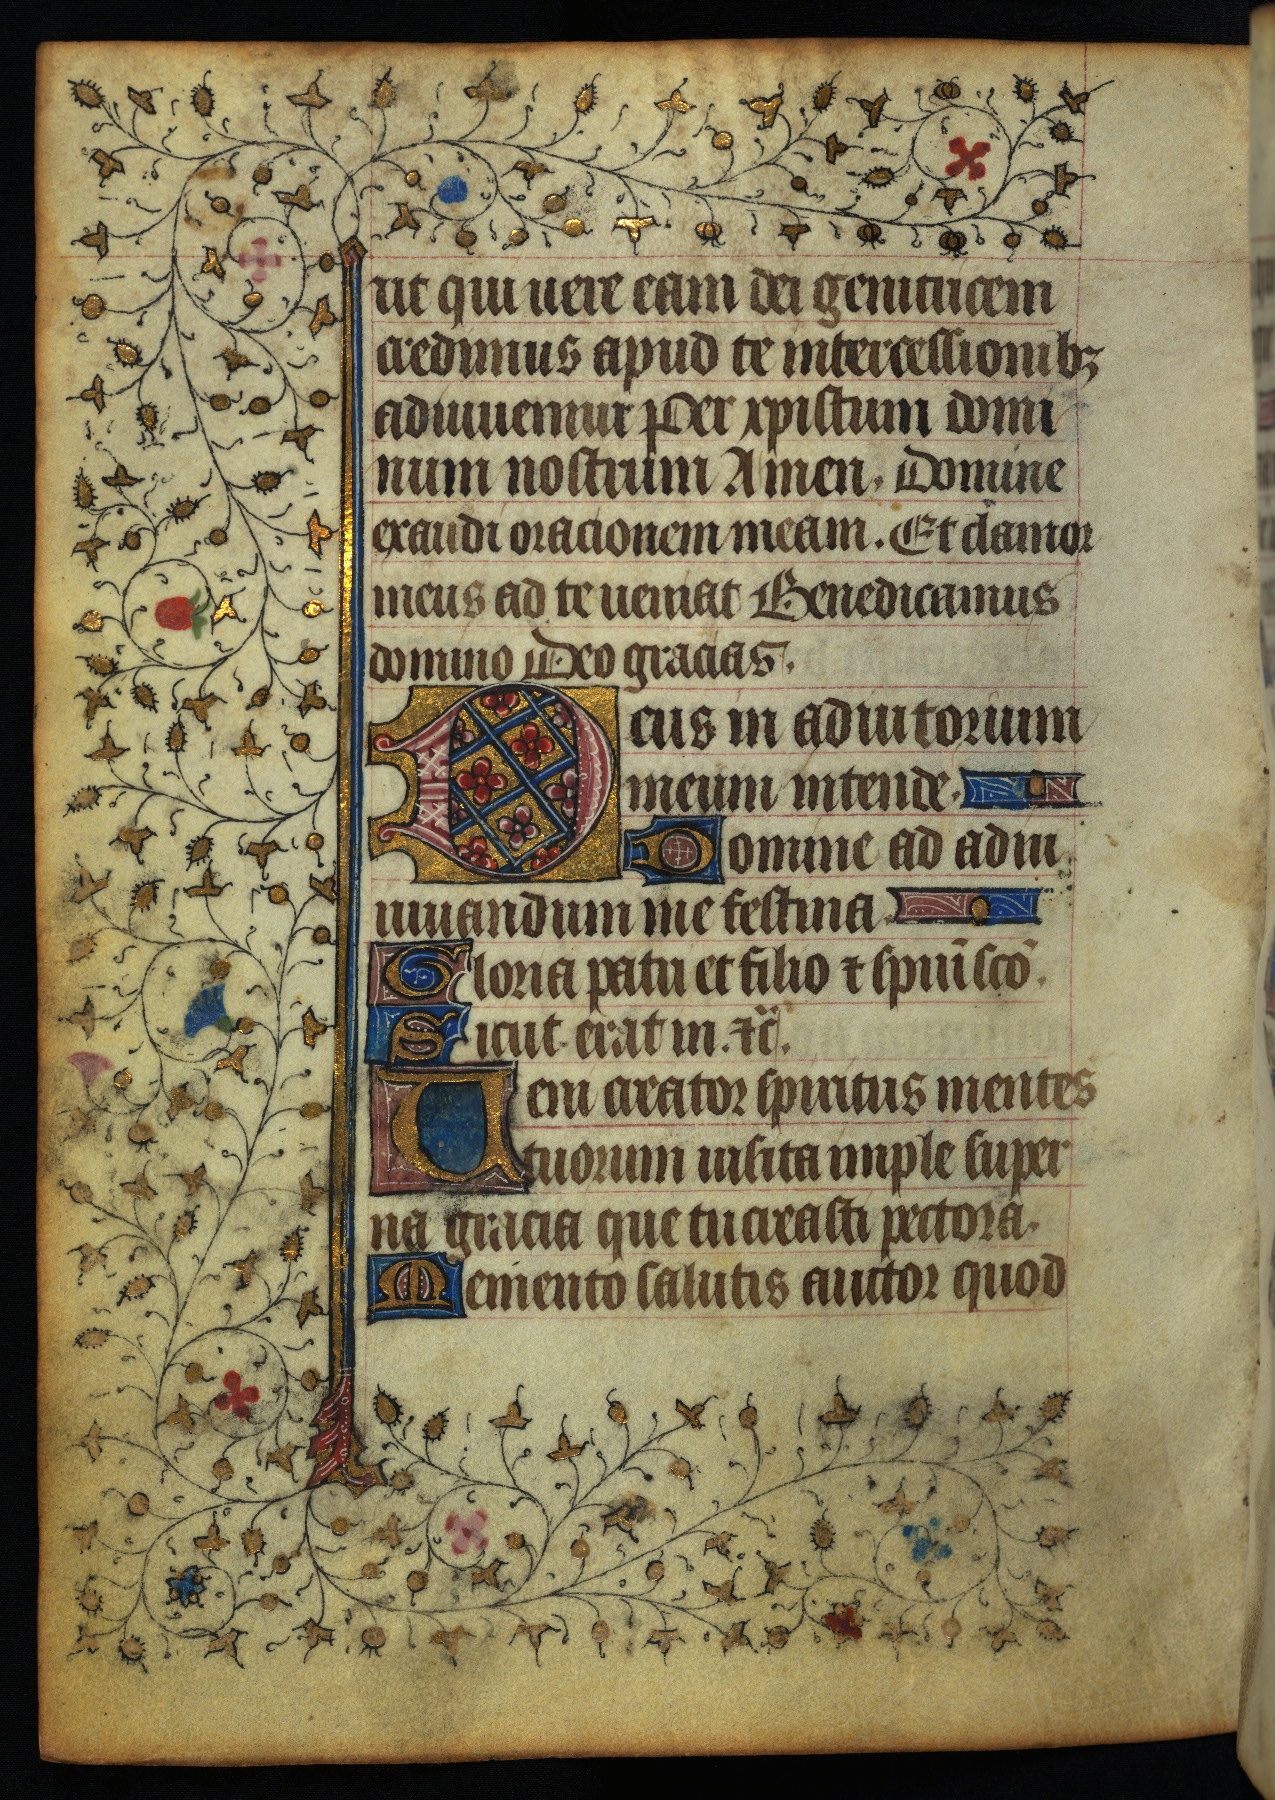 ut qui uere eam dei genitricem
credimus apud te intercessionibꝫ
adiuuemur Per xpistum domi
num nostrum Amen. Domine
exaudi oracionem meam. Et clamor
meus ad te ueniat Benedicamus
domino Deo gracias.
Deus in adiutorium
meum intende.
Domine ad adiu
uuandum me festina
Gloria patri et filio ⁊ spūi scō.
Sicut erat in. ⁊c̄.
Ueni creator spiritus mentes
tuorum uisita imple super
na gracia que tu creasti pectora.
Memento salutis auctor quod